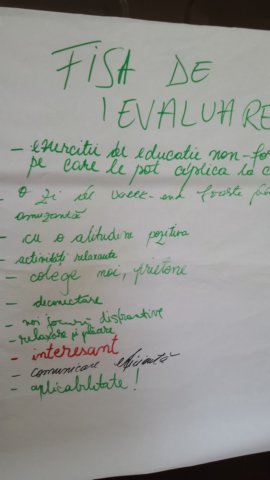 FISA DE
EVALUARE
- exercitii de educatie non-for
pe care le pot aplica la c
- o zi de week-end foarte
amuzantă
- cu o atitudine pozitiva
- activități relaxante
- colege noi, prietene
- deconectare
- noi jocuri distractive
- relaxare și plăcere
- interesant
- comunicare eficientă
- aplicabilitate!